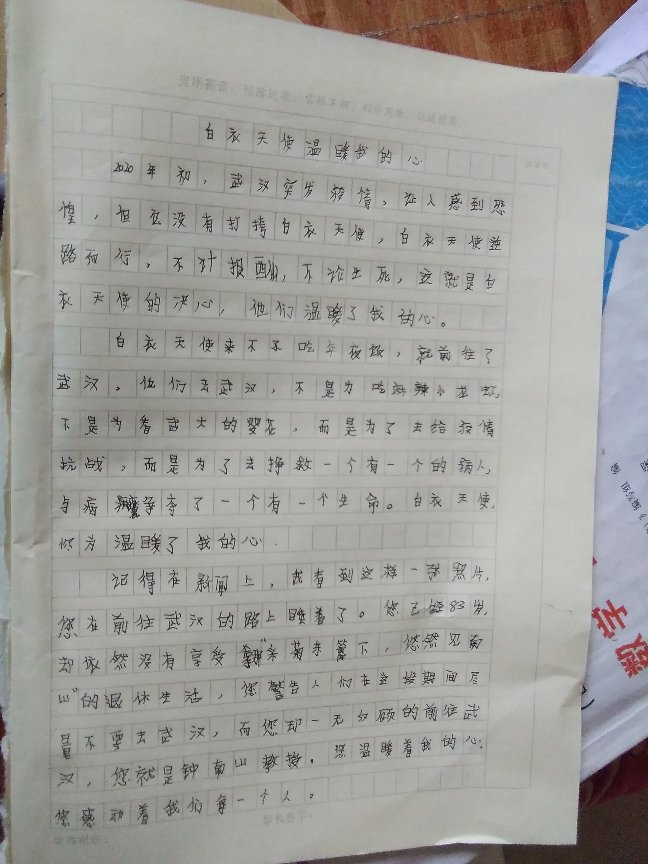 白衣天使温暖我的心
2020年初，武汉突发疫情，让人感到恐
惶，但却没有打垮白衣天使，白衣天使并
路而行，不计报酬，不论生死，这就是白
衣天使的决心，他们温暖了我的心。
白衣天使来不及吃年夜饭，就前往了
武汉。他们去武汉，不是为吃麻辣小龙虾，
不是为看武大的樱花，而是为了去给疫情
抗战，而是为了去挣救一个有一个的病人，
与病争夺了一个有一个生命。白衣天使，
你为温暖了我的心.
记得在新闻上，我看到这样一张照片，
您在前往武汉的路上睡着了。您已经83岁，
却依然没有享受"采菊东篱下，悠然见南
山"的退休生活，您警告人们在这段期间尽
量不要去武汉，而您却一无反顾的前往武
汉，您就是钟南山教授。您温暖着我的心，
您感动着我们每一个人。
家长签字：
老师批示：